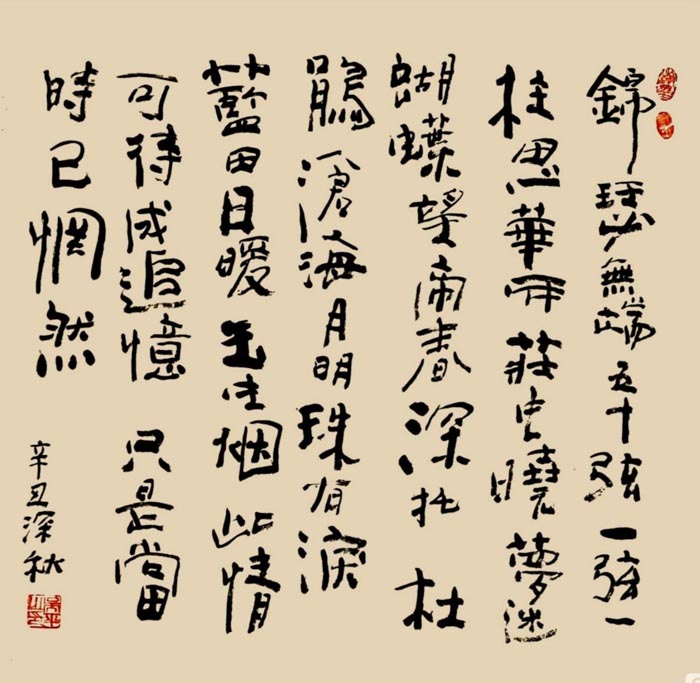 錦瑟無端五十弦一弦一
柱思華年莊生曉夢迷
蝴蝶望帝春深托杜
鵑滄海月明珠有淚
藍田日暖玉生烟此情
可待成追憶只是當
時已惘然
辛丑深秋